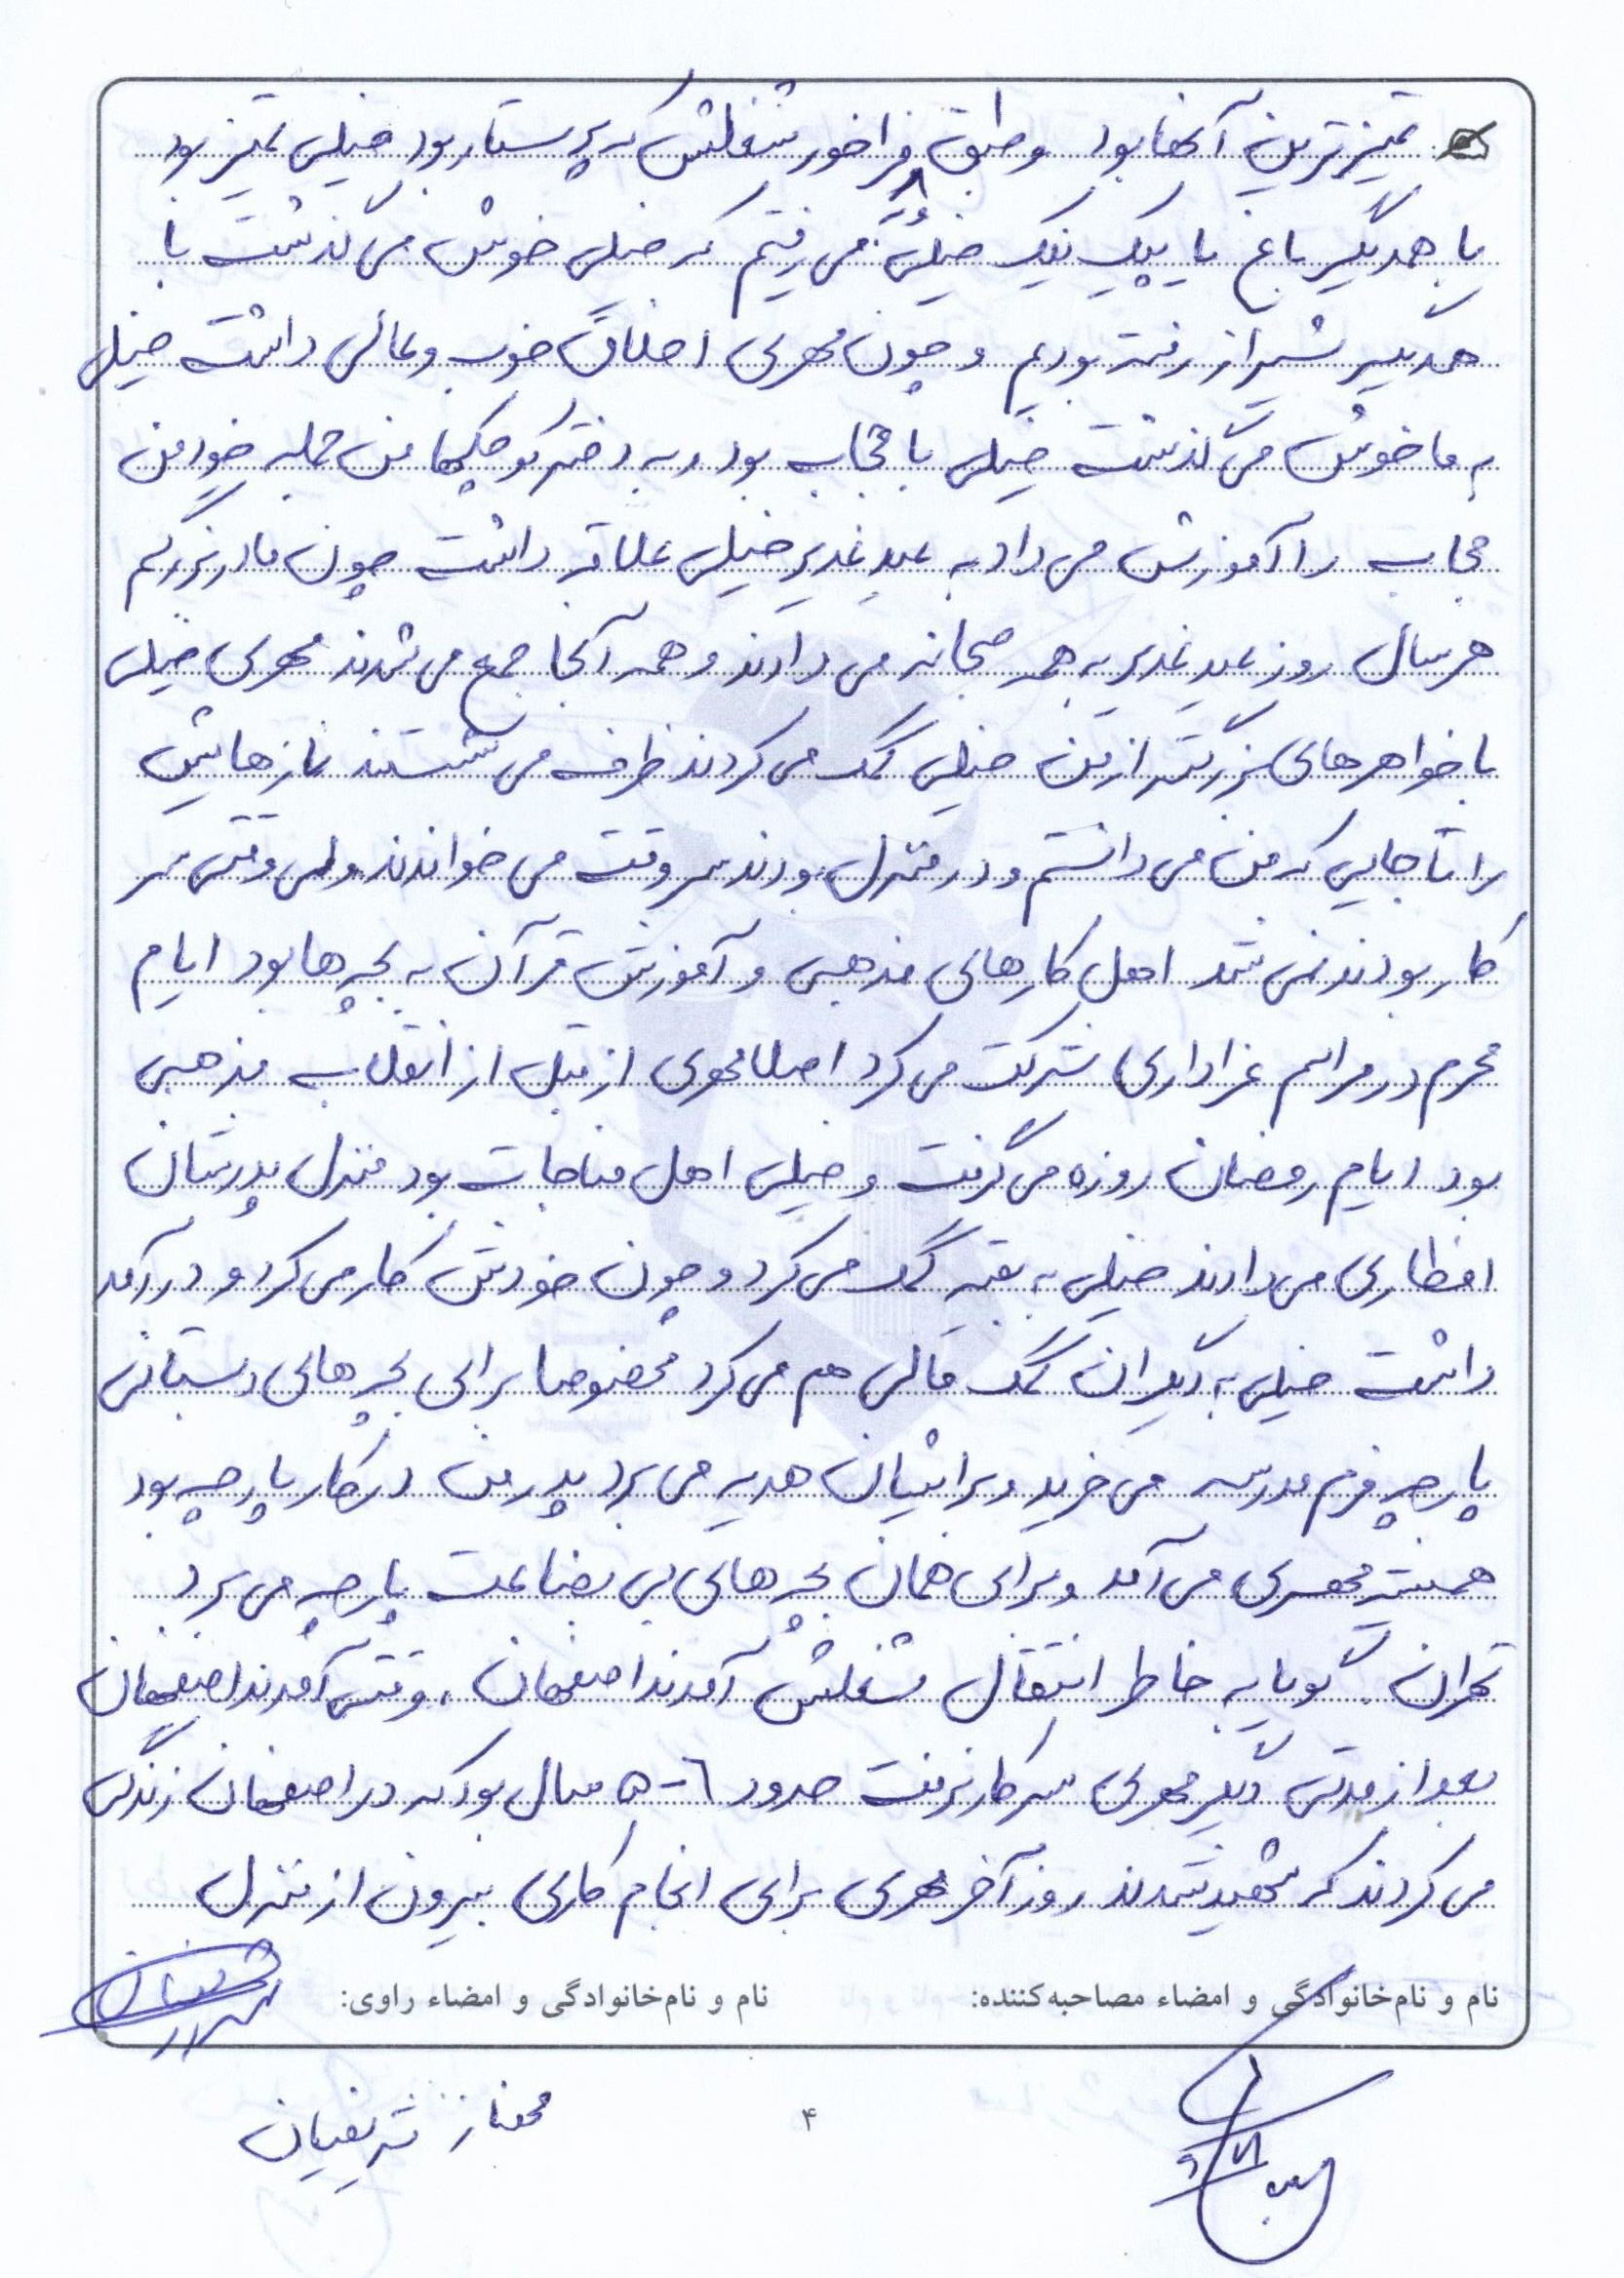 تمیزترین آنها بود و طبق فراخور شغلش که پرستار بود خیلی تمیز بود
با همدیگر باغ یا پیک نیک خیلی می رفتیم که خیلی خوش می گذشت با
همدیگر شیراز رفته بودیم و چون مهری اخلاق خوب و عالی داشت خیلی
به ما خوش می گذشت خیلی با حجاب بود و به دختر کوچکها من جمله خود من
حجاب را آموزش می داد به عید غدیر خیلی علاقه داشت چون مادربزرگم
هر سال روز عید غدیر به همه صبحانه می دادند و همه آنجا جمع می شدند مهری خیلی
با خواهرهای بزرگتر از من خیلی کمک می کردند ظرف می شستند نمازهایش
را تا جایی که من می دانستم و در منزل بودند سر وقت می خواندند ولی وقتی سر
کار بودند نمی شد اهل کارهای مذهبی و آموزش قرآن به بچه ها بود ایام
محرم در مراسم عزاداری شرکت می کرد اصلا مهری از قبل از انقلاب مذهبی
بود ایام رمضان روزه می گرفت و خیلی اهل مناجات بود منزل پدرشان
افطاری می دادند خیلی به بقیه کمک می کرد و چون خودش کار می کرد و درآمد
داشت خیلی به دیگران کمک مالی هم می کرد مخصوصا برای بچه های دبستانی
پارچه فرم مدرسه می خرید و برایشان هدیه می برد پدر من در کار پارچه بود
همیشه مهری می آمد و برای همان بچه های بی بضاعت پارچه می برد
تهران. گویا به خاطر انتقال شغلش آمدند اصفهان، وقتی آمدند اصفهان
بعد از مدتی دیگر مهری سر کار نرفت حدود ٦-۵ سال بود که در اصفهان زندگی
می کردند که شهید شدند روز آخر مهری برای انجام کاری بیرون از منزل
نام و نام‌خانوادگی و امضاء مصاحبه‌کننده: نام و نام‌خانوادگی و امضاء راوی:
مهناز شریفیان
۴